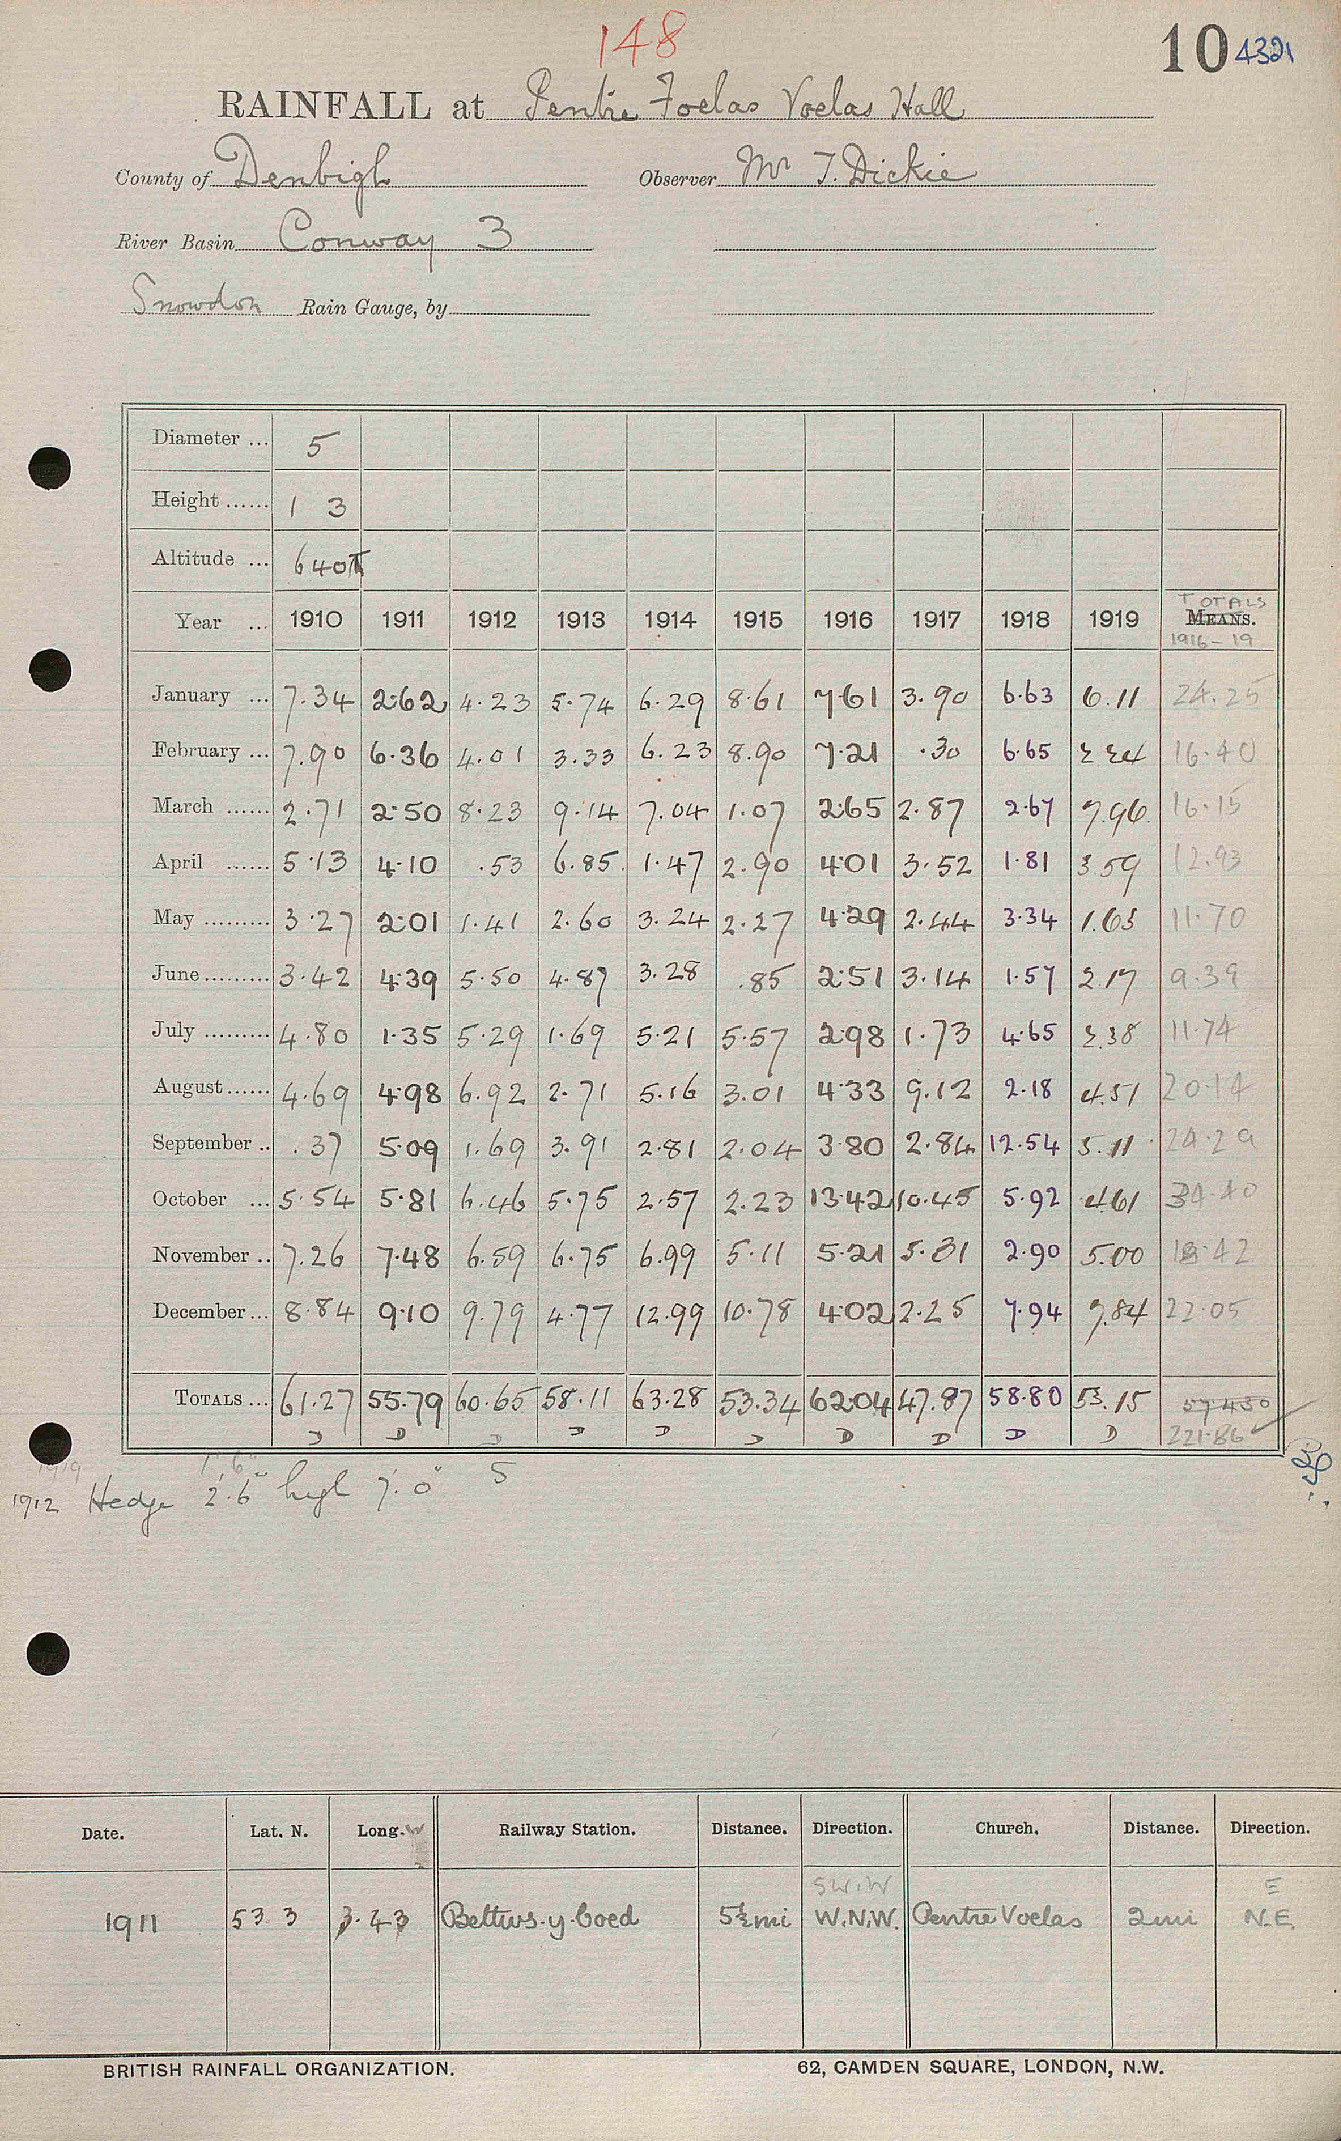 148
10 4321
RAINFALL at Pentre Foelas Voelas Hall
County of Denbigh Observer Mr T. Dickie
River Basin Conway 3
Snowdon Rain Gauge, by
Diameter ... 5
Height ...... 1 3
Altitude ... 640T
TOTALS
Year ... 1910 1911 1912 1913 1914 1915 1916 1917 1918 1919 MEANS.
1916-19
January ... 7.34 2.62 4.23 5.74 6.29 8.61 7.61 3.90 6.63 6.11 24.25
February ... 7.90 6.36 4.01 3.33 6.23 8.90 7.21 .30 6.65 2.24 16.40
March ...... 2.71 2.50 8.23 9.14 7.04 1.07 2.65 2.87 2.67 7.96 16.15
April ...... 5.13 4.10 .53 6.85 1.47 2.90 4.01 3.52 1.81 3.59 12.93
May ......... 3.27 2.01 1.41 2.60 3.24 2.27 4.29 2.44 3.34 1.63 11.70
June ......... 3.42 4.39 5.50 4.87 3.28 .85 2.51 3.14 1.57 2.17 9.39
July ......... 4.80 1.35 5.29 1.69 5.21 5.57 2.98 1.73 4.65 2.38 11.74
August ...... 4.69 4.98 6.92 2.71 5.16 3.01 4.33 9.12 2.18 4.51 20.14
September .. .37 5.09 1.69 3.91 2.81 2.04 3.80 2.84 12.54 5.11 24.29
October ... 5.54 5.81 6.46 5.75 2.57 2.23 13.42 10.45 5.92 4.61 34.40
November .. 7.26 7.48 6.59 6.75 6.99 5.11 5.21 5.31 2.90 5.00 18.42
December ... 8.84 9.10 9.79 4.77 12.99 10.78 4.02 2.25 7.94 7.84 22.05
TOTALS ... 61.27 55.79 60.65 58.11 63.28 53.34 62.04 47.87 58.80 53.15
D D D D D D D D D D 221.86
1919 1'.6"
1912 Hedge 2'.6" high 7'.0" S
Date. Lat. N. Long. W Railway Station. Distance. Direction. Church. Distance. Direction.
SW.W E
1911 53 3 3.43 Bettws-y-Coed 5½mi W.N.W. Pentre Voelas 2mi N.E.
BRITISH RAINFALL ORGANIZATION. 62, CAMDEN SQUARE, LONDON, N.W.